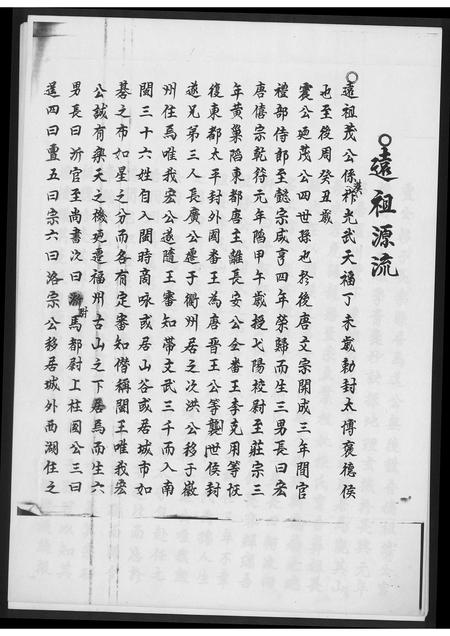 遠祖源流
遠祖茂公係漢祚光武天福丁未歲勅封太傅褒德侯
也至後周癸丑歲
震公迺茂公四世孫也於後唐文宗開成三年間官
禮部侍郎至懿宗咸亨四年榮歸而生三男長曰宏
唐僖宗乾符元年陷甲午歲授弋陽校尉至莊宗三
年黃巢陷東都唐主離長安公仝番王李克用等恢
復東都太平封外國番王為唐晉王公等襲世侯封
遂兄弟三人長廣公遷于衢州居之次洪公移于徽
州住焉唯我宏公遂隨王審知帶文武三千而入南
閩三十六姓自入閩時商咏或居山谷或居城市如
碁之布如星之分而各有定審知僭稱閩王唯我宏
公誠有樂天之機迺遷福州古山之下居焉而生六
男長曰沂官至尚書次曰㴋駙馬都尉上柱國公三曰
選四曰豐五曰宗六曰洛宗公移居城外西湖住之